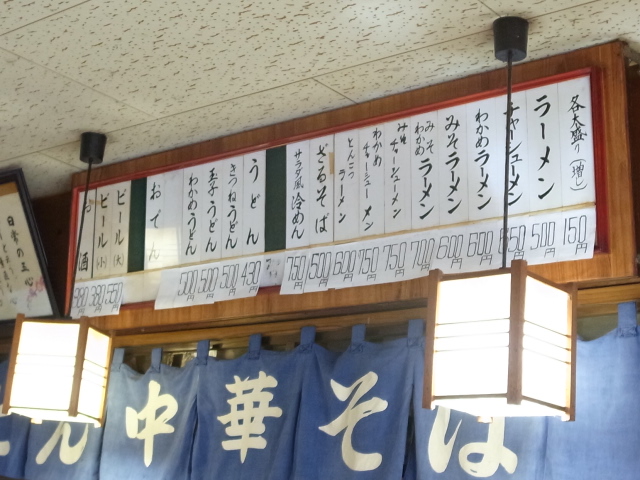 各大盛り(増し) 150円
ラーメン 500円
チャーシューメン 650円
わかめラーメン 600円
みそラーメン 600円
みそわかめラーメン 700円
みそチャーシューメン 750円
わかめチャーシューメン 750円
とんこつラーメン 600円
ざるそば 500円
サラダ風冷めん 750円
うどん 430円
きつねうどん 500円
玉子うどん 500円
わかめうどん 500円
おでん
ビール(大) 550円
ビール(小) 380円
お酒 380円
日常の五心
ん 中華そば